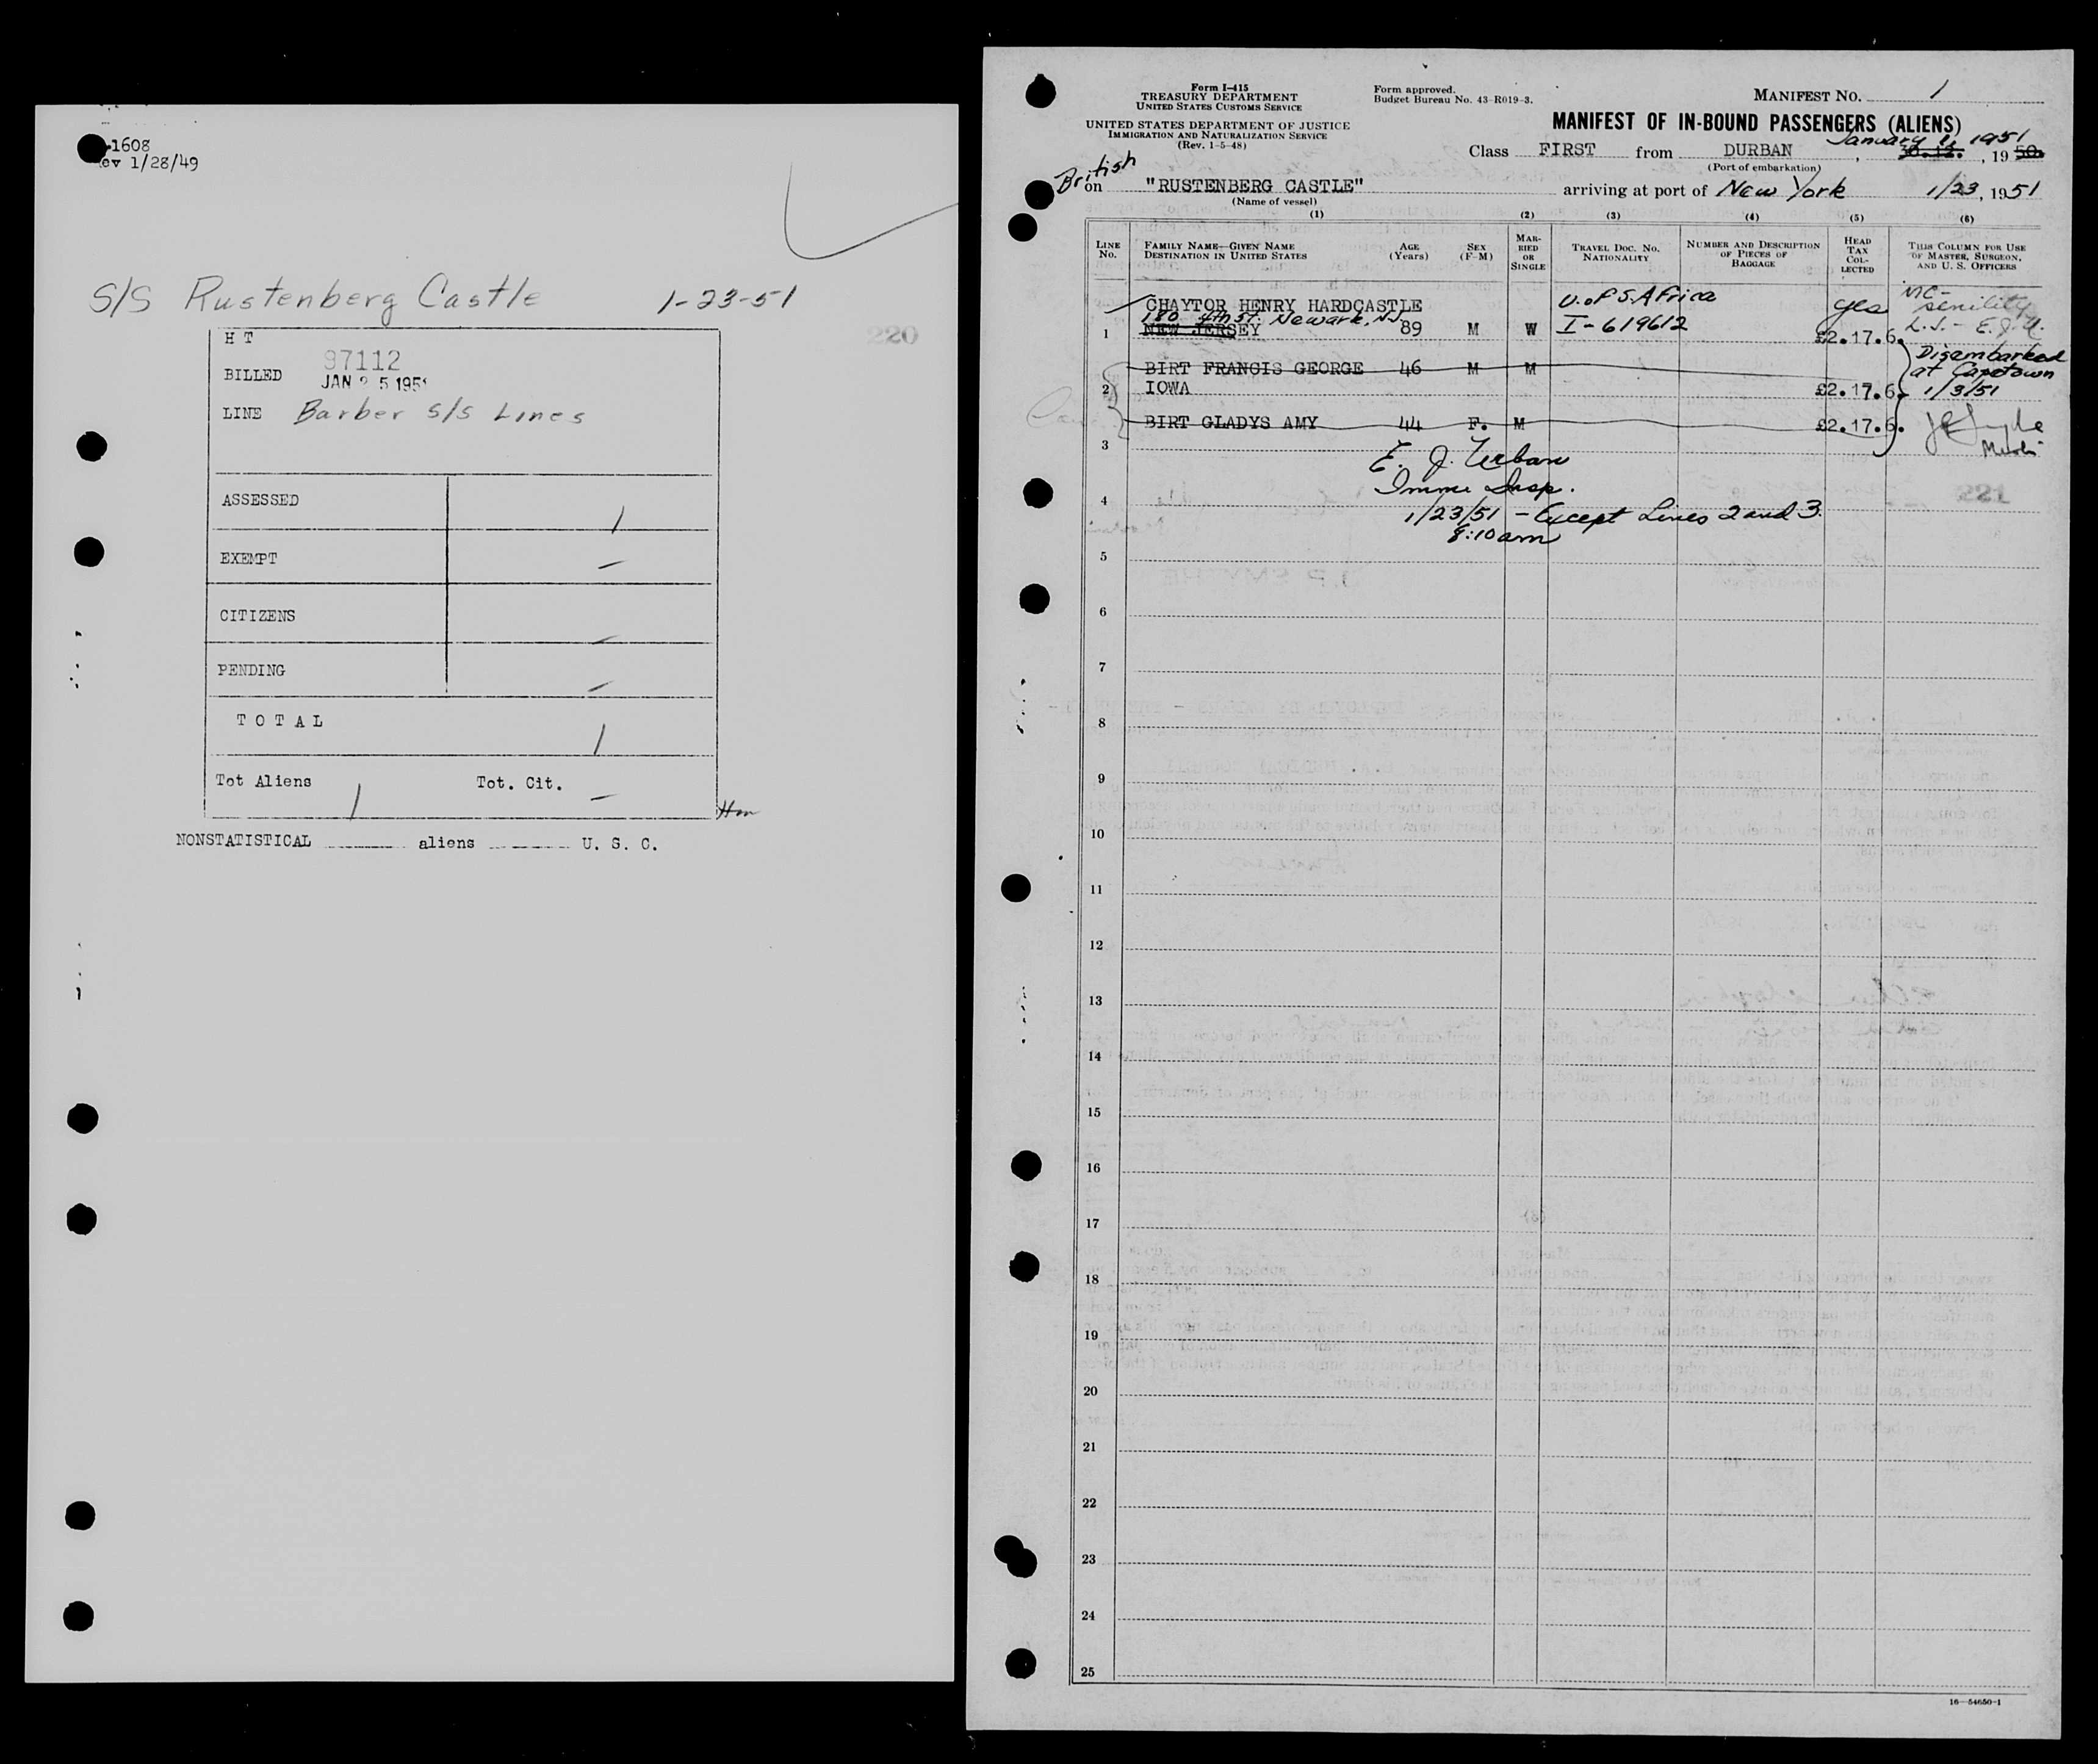 1608
ev 1/28/49
S/S Rustenberg Castle 1-23-51
220
H T
97112
BILLED JAN 25 1951
LINE Barber S/S Lines
ASSESSED 1
EXEMPT –
CITIZENS –
PENDING –
T O T A L 1
Tot Aliens 1 Tot. Cit. –
NONSTATISTICAL aliens U. S. C.
Form I-415
TREASURY DEPARTMENT
UNITED STATES CUSTOMS SERVICE
UNITED STATES DEPARTMENT OF JUSTICE
IMMIGRATION AND NATURALIZATION SERVICE
(Rev. 1-5-48)
Form approved.
Budget Bureau No. 43-R019-3.
MANIFEST NO. 1
MANIFEST OF IN-BOUND PASSENGERS (ALIENS)
January 1, 1951
Class FIRST from DURBAN, 30.12., 19 50.
(Port of embarkation)
British
on "RUSTENBERG CASTLE" arriving at port of New York 1/23, 1951
(Name of vessel)
(1) (2) (3) (4) (5) (6)
LINE NO.
FAMILY NAME—GIVEN NAME
DESTINATION IN UNITED STATES
AGE (Years)
SEX (F-M)
MARRIED OR SINGLE
TRAVEL DOC. NO.
NATIONALITY
NUMBER AND DESCRIPTION OF PIECES OF BAGGAGE
HEAD TAX COLLECTED
THIS COLUMN FOR USE OF MASTER, SURGEON, AND U. S. OFFICERS
CHAYTOR HENRY HARDCASTLE U. of S. Africa yes MC- senility
180 4th St. Newark, N.J.
1 NEW JERSEY 89 M W I-619612 £2.17.6. L.J.- E.J.U.
BIRT FRANCIS GEORGE 46 M M Disembarked
2 IOWA £2.17.6. at Capetown
1/3/51
BIRT GLADYS AMY 44 F. M £2.17.6.
3
E. J. Urban
Imm Insp.
4
1/23/51 – Except Lines 2 and 3.
8:10am
221
5
6
7
8
9
10
11
12
13
14
15
16
17
18
19
20
21
22
23
24
25
16—54650-1